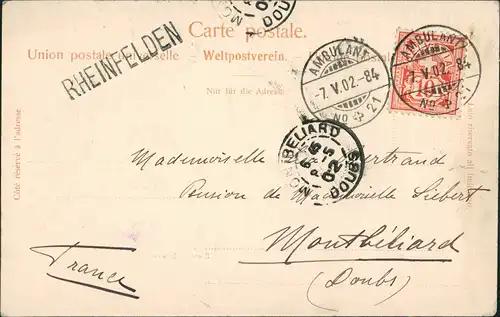 Carte postale.
Union postale universelle Weltpostverein.
Nur für die Adresse
RHEINFELDEN
AMBULANT
-7.V.02.-84
No 21
AMBULANT
-7.V.02.-84
No 21
10
MONTBELIARD
02
DOUBS
DOUBS
Côté réservé à l'adresse
Mademoiselle Bertrand
Pension de Mademoiselle Siebert
Montbéliard
(Doubs)
France